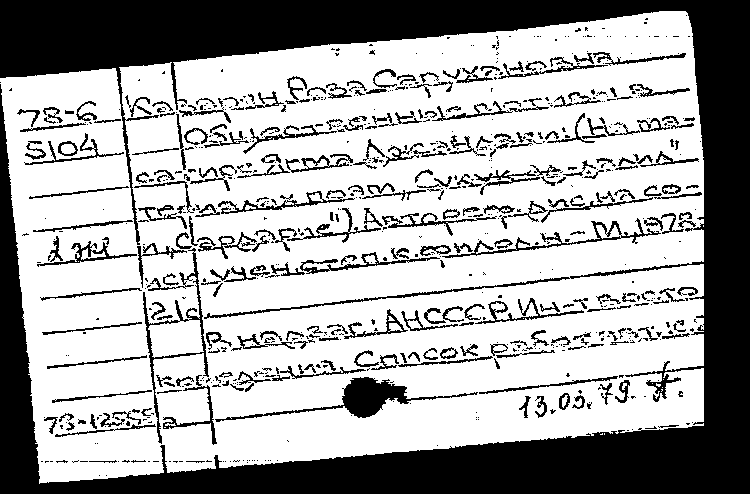 78-6 Казарян, Роза Саруханoвна.
5104 Общественные мотивы в
сатире Ягма Джандаки: (На ма-
териалах поэм „Сукук ад-далил"
2 экз и „Сардарие"). Автореф. дис. на со-
иск. учен. степ. к. филол. н. - М., 1978.-
21с.
В надзаг.: АН СССР. Ин-т восто
коведения. Список работ авт.: с. 2
78-12555а
13.03.79.